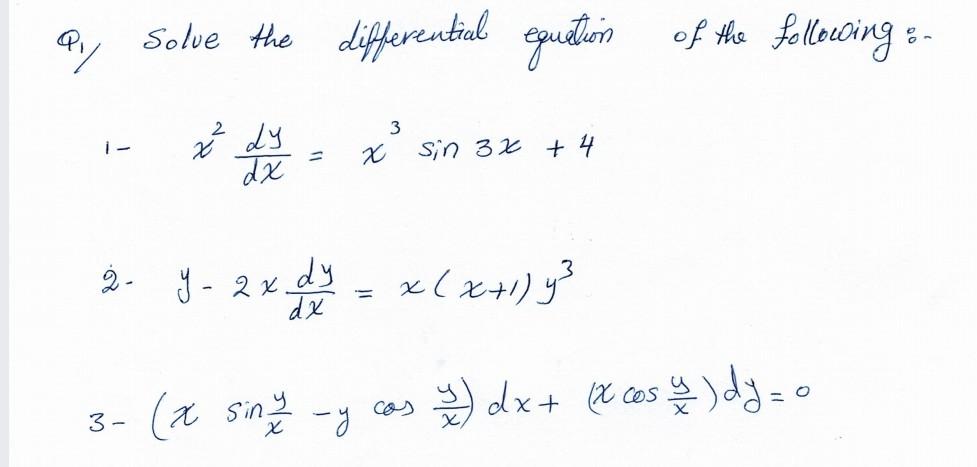 Q1/ Solve the differential equation of the following :-
1- x² dy/dx = x³ sin 3x + 4
2- y - 2x dy/dx = x(x+1) y³
3- (x sin y/x - y cos y/x) dx + (x cos y/x) dy = 0